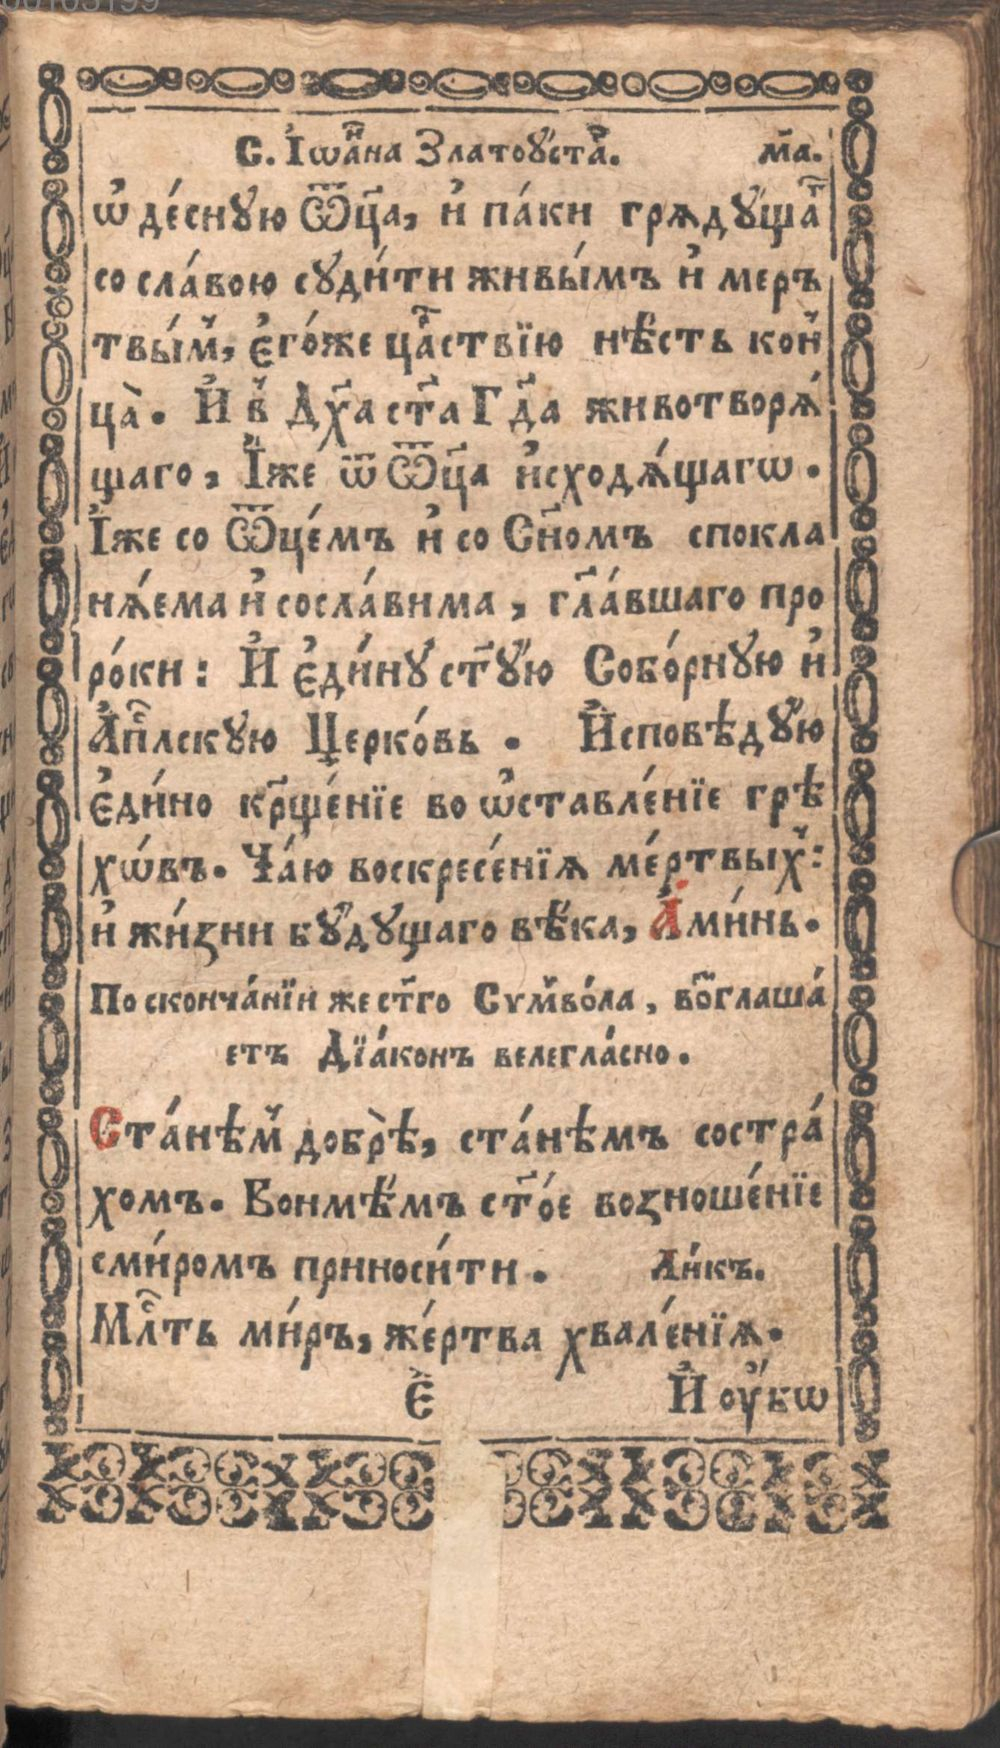 С. І҆ѡа́нна Златоу́стаⷢ. м҃а.
ѡ҆ де́сную Ѿц҃а, и҆ па́ки грѧду́щаⷢ҇
со сла́вою суди́ти живы́мъ и҆ мер
твы́м, є҆го́же црⷭ҇твїю нѣ́сть кон
ца̀. И҆ в Дх҃а ст҃а Гд҃а животворѧ́
щаго, І҆́же ѿ Ѿц҃а и҆сходѧ́щагѡ.
І҆́же со Ѿце́мъ и҆ со Сн҃омъ спокла
нѧ́ема и҆ сосла́вима, гл҃авшаго про
ро́ки: И҆ є҆ди́ну ст҃у́ю Собо́рную и҆
А҆пⷭ҇лскую Церко́вь. И҆сповѣ́дую
є҆ди́но кр҃ще́нїе во ѡ҆ставле́нїе грѣ
хѡ́въ. Ча́ю воскресе́нїѧ ме́ртвых:
и҆ жи́зни бу́дущаго вѣ́ка, А҆ми́нь.
По сконча́нїи же ст҃го Сѵмво́ла, во҃глаша́
етъ Дїа́конъ велегла́сно.
Ста́нѣм добрѣ̀, ста́нѣмъ состра́
хомъ. Вонмѣ́мъ ст҃о́е возноше́нїе
сми́ромъ приноси́ти. Ли́къ.
Млⷭ҇ть ми́ръ, же́ртва хвале́нїѧ.
Є҆ И҆ оу҆бѡ